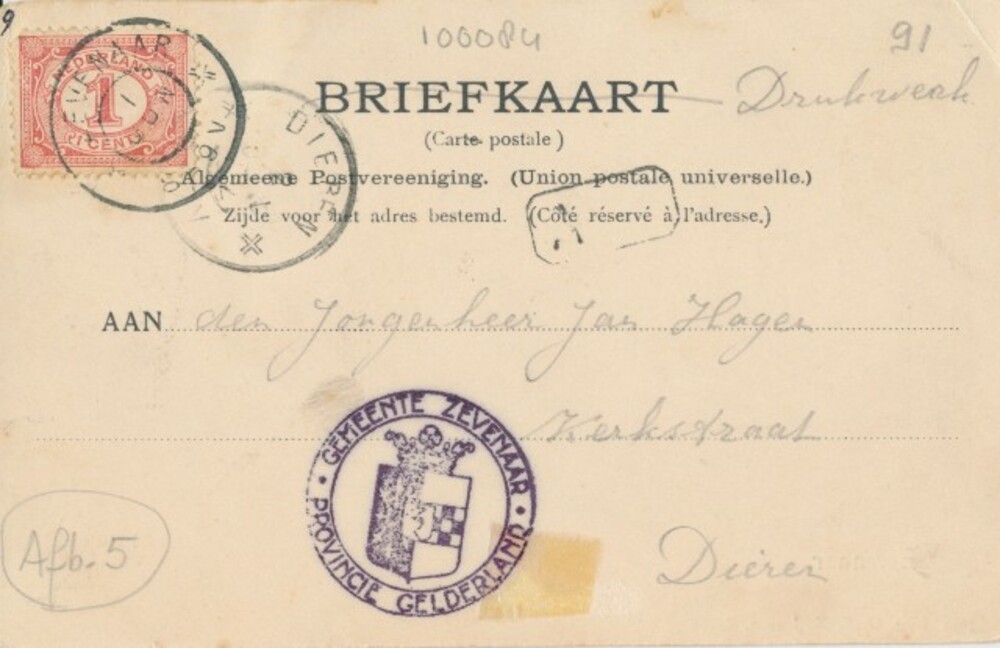 9
100084
91
NEDERLAND
1
CENT
ZEVENAAR
DIEREN
BRIEFKAART
Drukwerk
(Carte postale)
Algemeene Postvereeniging. (Union postale universelle.)
Zijde voor het adres bestemd. (Côté réservé à l'adresse.)
AAN den Jongenheer Jan Hagen
Kerkstraat
Dieren
GEMEENTE ZEVENAAR
PROVINCIE GELDERLAND
Afb. 5